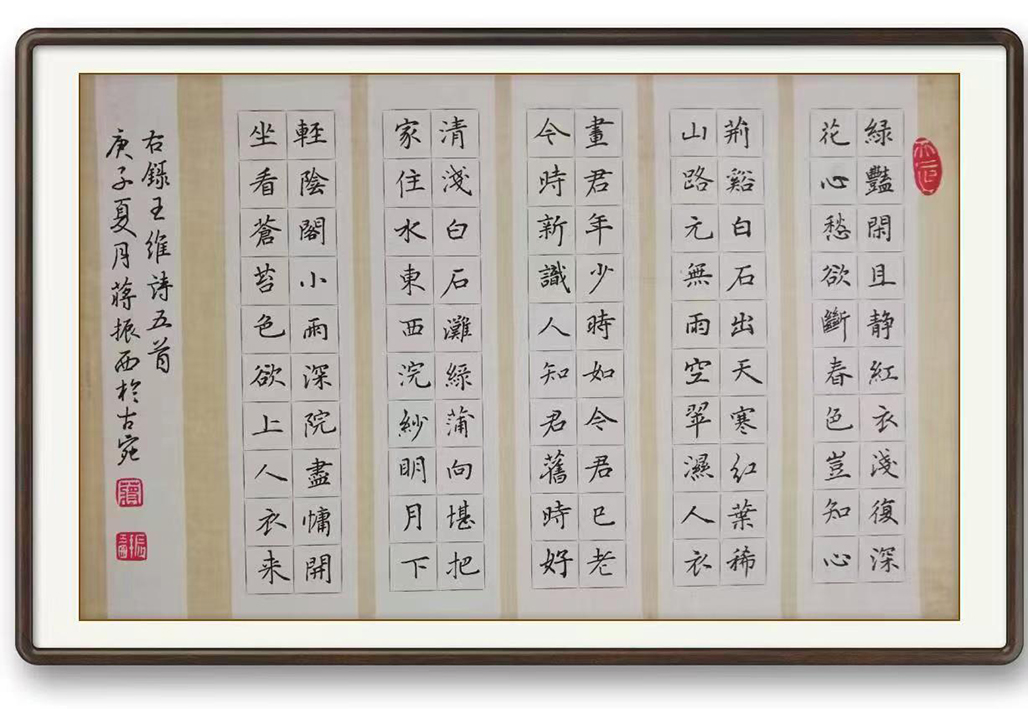 綠豔閑且静紅衣淺復深
花心愁欲斷春色豈知心
荊谿白石出天寒紅葉稀
山路元無雨空翠濕人衣
畫君年少時如今君已老
今時新識人知君舊時好
清淺白石灘綠蒲向堪把
家住水東西浣紗明月下
輕陰閣小雨深院盡慵開
坐看蒼苔色欲上人衣来
右錄王維詩五首
庚子夏月蔣振西於古宛